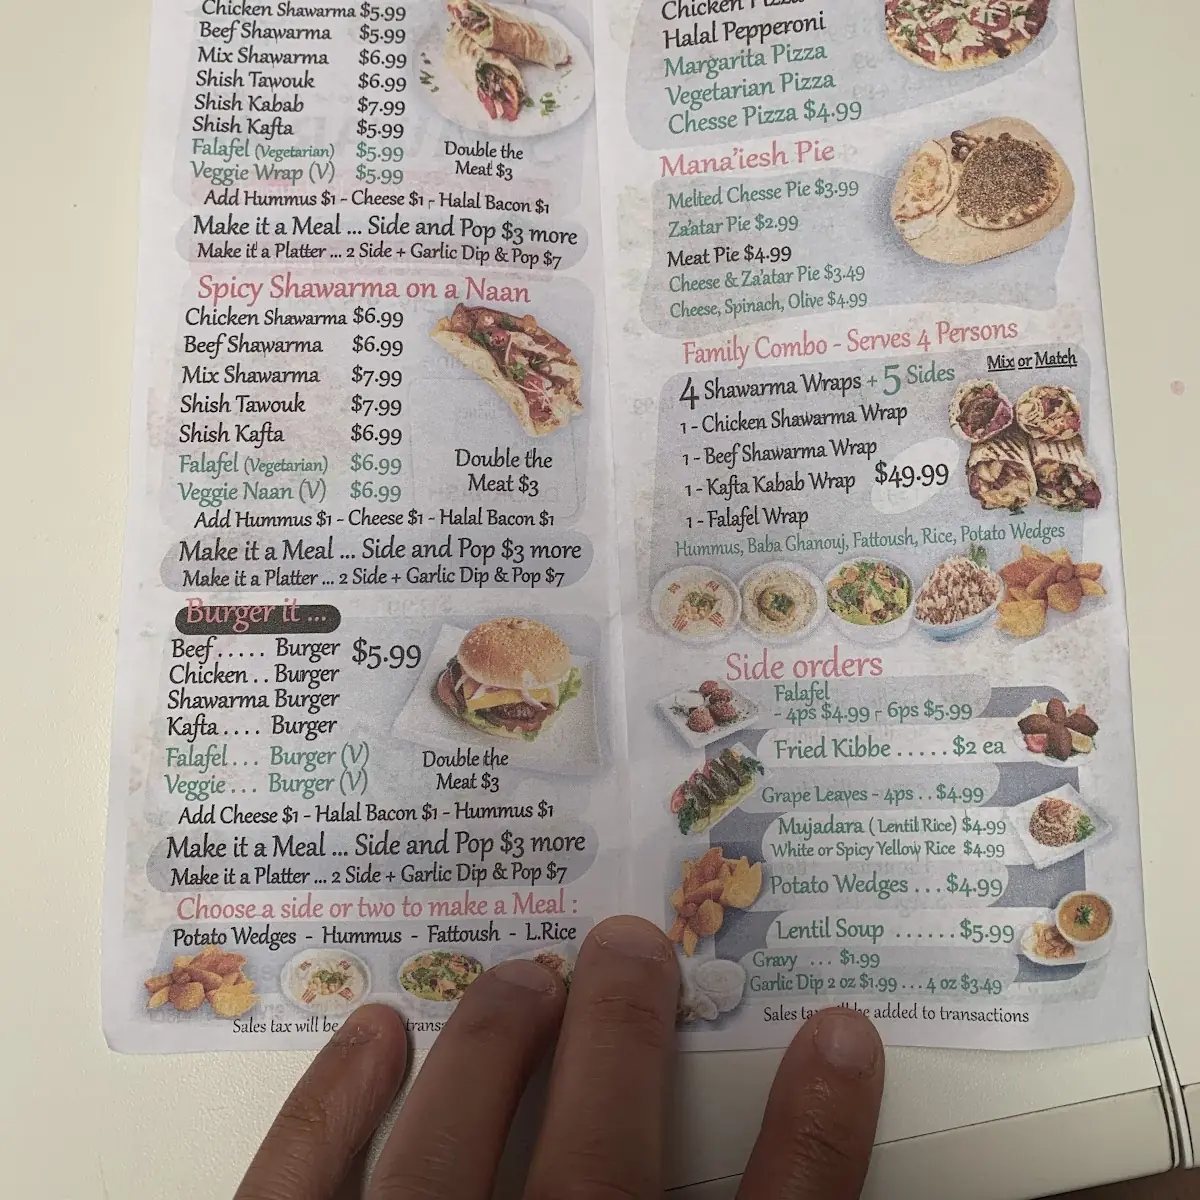 Chicken Shawarma $5.99
Beef Shawarma $5.99
Mix Shawarma $6.99
Shish Tawouk $6.99
Shish Kabab $7.99
Shish Kafta $5.99
Falafel (Vegetarian) $5.99
Veggie Wrap (V) $5.99
Double the
Meat $3
Add Hummus $1 - Cheese $1 - Halal Bacon $1
Make it a Meal ... Side and Pop $3 more
Make it a Platter ... 2 Side + Garlic Dip & Pop $7
Spicy Shawarma on a Naan
Chicken Shawarma $6.99
Beef Shawarma $6.99
Mix Shawarma $7.99
Shish Tawouk $7.99
Shish Kafta $6.99
Falafel (Vegetarian) $6.99
Veggie Naan (V) $6.99
Double the
Meat $3
Add Hummus $1 - Cheese $1 - Halal Bacon $1
Make it a Meal ... Side and Pop $3 more
Make it a Platter ... 2 Side + Garlic Dip & Pop $7
Burger it ...
Beef ..... Burger $5.99
Chicken .. Burger
Shawarma Burger
Kafta .... Burger
Falafel ... Burger (V)
Veggie ... Burger (V)
Double the
Meat $3
Add Cheese $1 - Halal Bacon $1 - Hummus $1
Make it a Meal ... Side and Pop $3 more
Make it a Platter ... 2 Side + Garlic Dip & Pop $7
Choose a side or two to make a Meal :
Potato Wedges - Hummus - Fattoush - L.Rice
Sales tax will be
Chicken Pizza
Halal Pepperoni
Margarita Pizza
Vegetarian Pizza
Chesse Pizza $4.99
Mana'iesh Pie
Melted Chesse Pie $3.99
Za'atar Pie $2.99
Meat Pie $4.99
Cheese & Za'atar Pie $3.49
Cheese, Spinach, Olive $4.99
Family Combo - Serves 4 Persons
4 Shawarma Wraps + 5 Sides
Mix or Match
1 - Chicken Shawarma Wrap
1 - Beef Shawarma Wrap
1 - Kafta Kabab Wrap $49.99
1 - Falafel Wrap
Hummus, Baba Ghanouj, Fattoush, Rice, Potato Wedges
Side orders
Falafel
- 4ps $4.99 - 6ps $5.99
Fried Kibbe ..... $2 ea
Grape Leaves - 4ps .. $4.99
Mujadara (Lentil Rice) $4.99
White or Spicy Yellow Rice $4.99
Potato Wedges ... $4.99
Lentil Soup ...... $5.99
Gravy ... $1.99
Garlic Dip 2 oz $1.99 ... 4 oz $3.49
Sales tax will be added to transactions